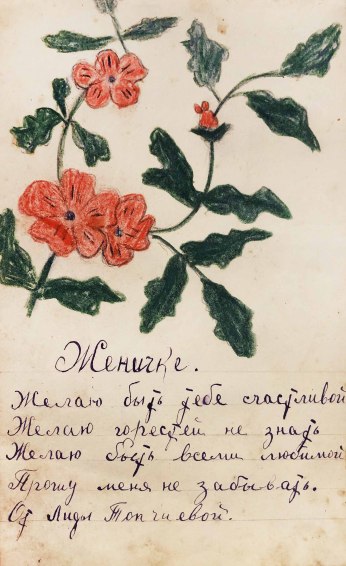 Женичке.
Желаю быть тебе счастливой
Желаю горестей не знать
Желаю быть всеми любимой
Прошу меня не забывать.
От Лиды Топчиевой.